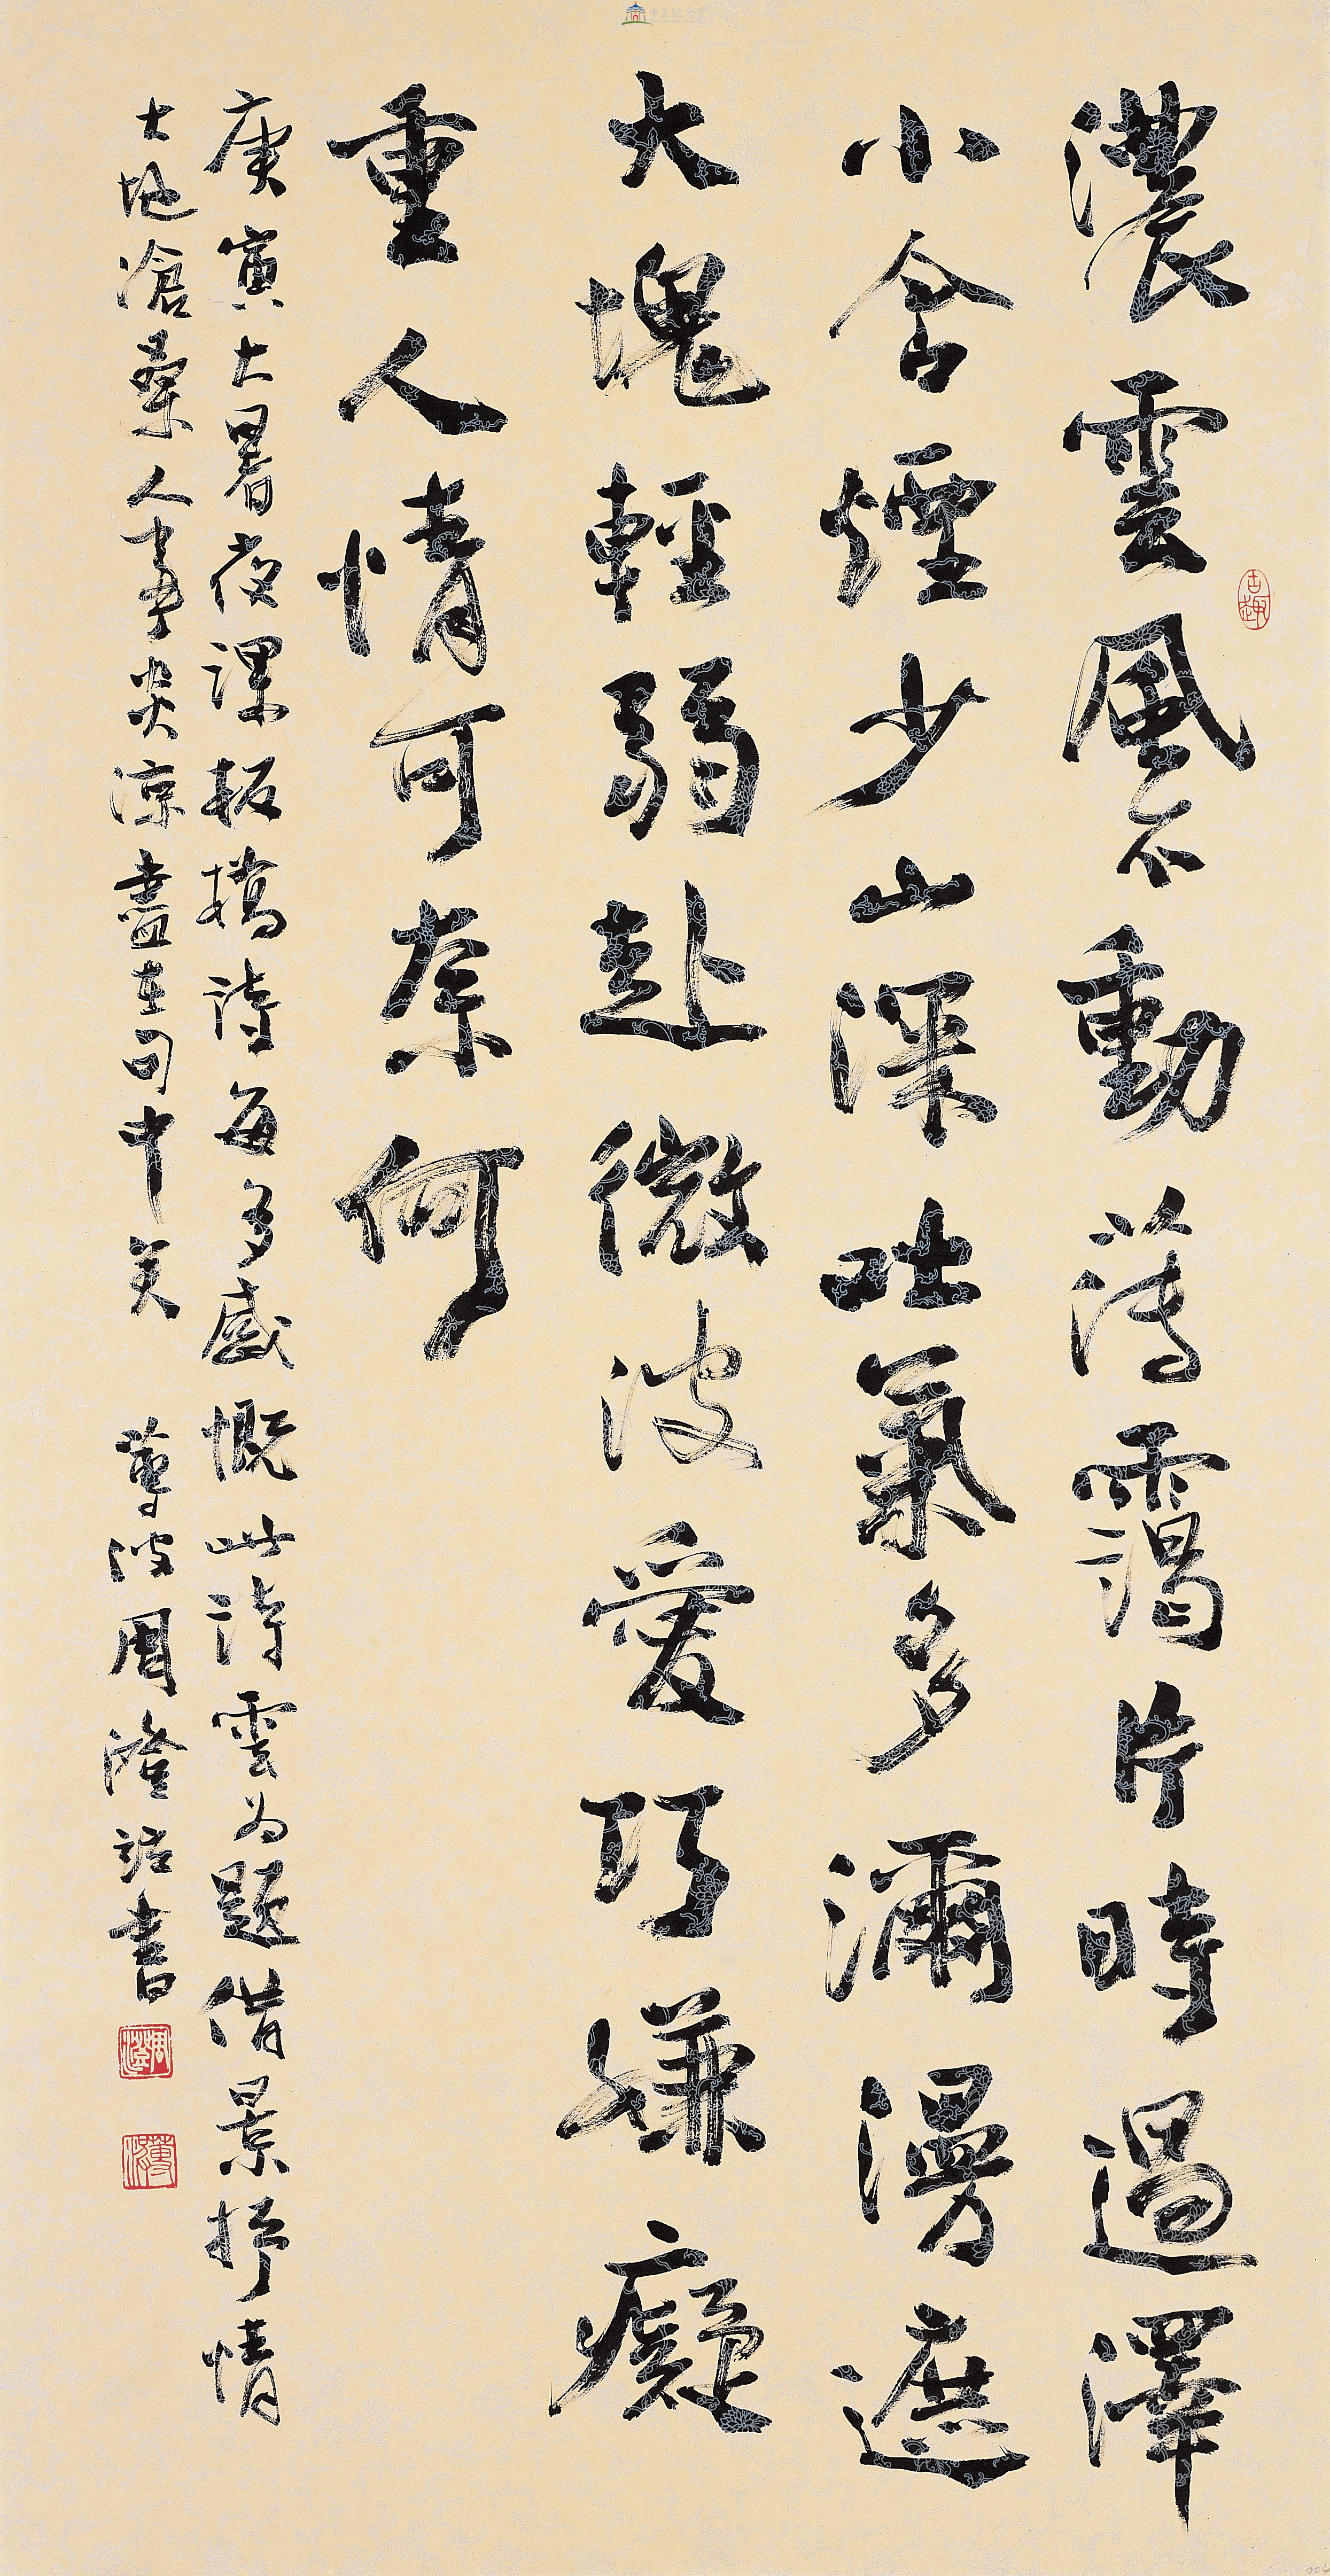 濃雲風不動薄靄片時過澤
小含煙少山深吐氣多瀰漫遮
大塊輕弱赴微波愛巧嫌癡
重人情可奈何
庚寅大暑夜課板橋詩每多感慨此詩雲為題借景抒情
大地滄桑人事炎涼盡在句中矣 蓴波周澄詒書